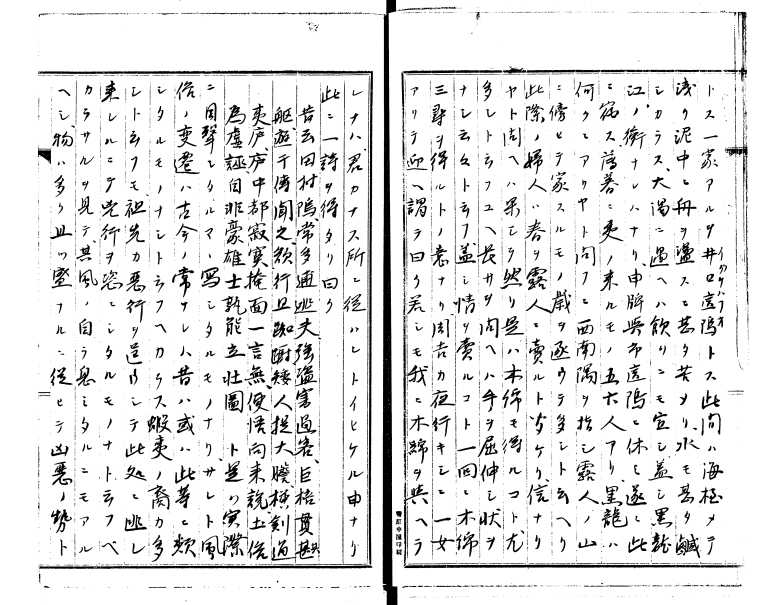 トス一家アルヲ井口遠塢トス此間ハ海極メテ
浅ク泥中ニ舟ヲ盪スニ甚タ苦メリ水モ甚タ鹹
シカラス大陽ニ遇ヘハ飲クニモ宜シ蓋シ黒龍
江ノ衝ナレハナリ申牌呉布遠塢ニ休シ遂ニ此
ニ宿ス落碁ニ夷ノ来ルモノ五六人アリ黒龍ハ
何クニアリヤト問フニ西南隅ヲ指シ露人ノ山
ニ傍ヒテ家スルモノ歳ヲ逐ウテ多シト云ヘリ
此際ノ婦人ハ春ヲ露人ニ賣ルト笑ケリ信ナリ
ヤト問ヘハ果シテ然リ是ハ木綿モ得ルコト尤
多シト云フユヘ長サヲ問ヘハ手ヲ屈伸シ状ヲ
ナシ云々ト云フ蓋シ情ヲ賣ルコト一回ニ木綿
三尋ヲ得ルトノ意ナリ周吉カ夜行キシニ一女
アリテ迎ヘ謂テ曰ク若シモ我ニ木綿ヲ與ヘラ
レナハ君カナス所ニ従ハントイヒケル由ナリ
此ニ一詩ヲ得タリ曰ク
昔云回村塢常多逋逃夫強盗害過客巨格貫
艇遊于傳聞之頻行且踟蹰矮人提大膽横剣過
夷庐庐中都寂寞掩面一言無使悟向来説土俗
為虚誣自非豪雄士孰能立壮圖 ト是ハ實際
ニ目撃シタルマヽ寫シタルモノナリサレト風
俗ノ変遷ハ古今ノ常ナレハ昔ハ或ハ此等ニ類
シタルモノナシト云フヘカラス蝦夷ノ裔カ多
シト云フモ祖先カ悪行ヲ逞ウシテ此処ニ逃レ
来レルニテ兇行ヲ恣ニシタルモノナト云フベ
カラサルヲ見テ其風ノ自ラ息ミタルニモアル
ヘシ物ハ多ク且ツ堅フルニ従ヒテ凶悪ノ勢ト